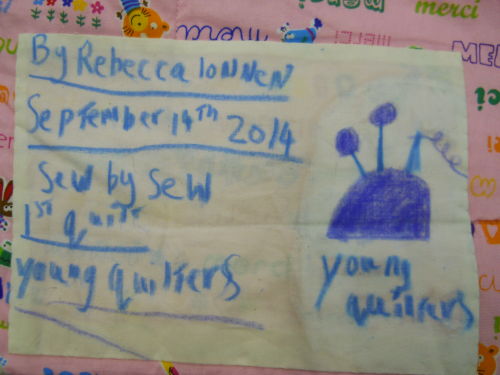 By Rebecca Ionnen
September 14th 2014
Sew by Sew
1st quilt
young quilters
young
quilters
merci
merci
MER